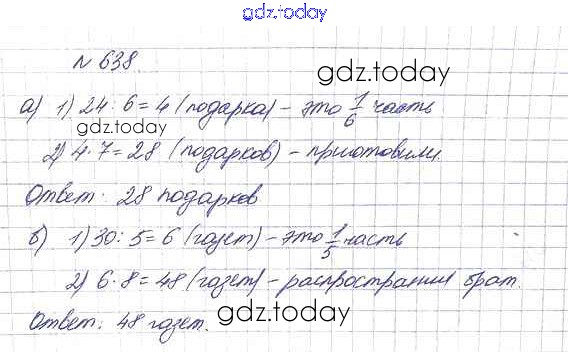 gdz.today
№ 638.
gdz.today
а) 1) 24 : 6 = 4 (подарка) – это 1/6 часть
gdz.today
2) 4 · 7 = 28 (подарков) – приготовили.
Ответ: 28 подарков
б) 1) 30 : 5 = 6 (газет) – это 1/5 часть
2) 6 · 8 = 48 (газет) – распространил брат.
gdz.today
Ответ: 48 газет.